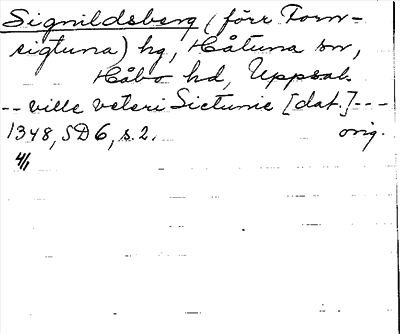 Signildsberg (förr Forn-
sigtuna) hg, Håtuna sn,
Håbo hd, Uppsal.
-- ville veteri Sictunie [dat.]---
1348, SD6, s. 2. orig.
4/1